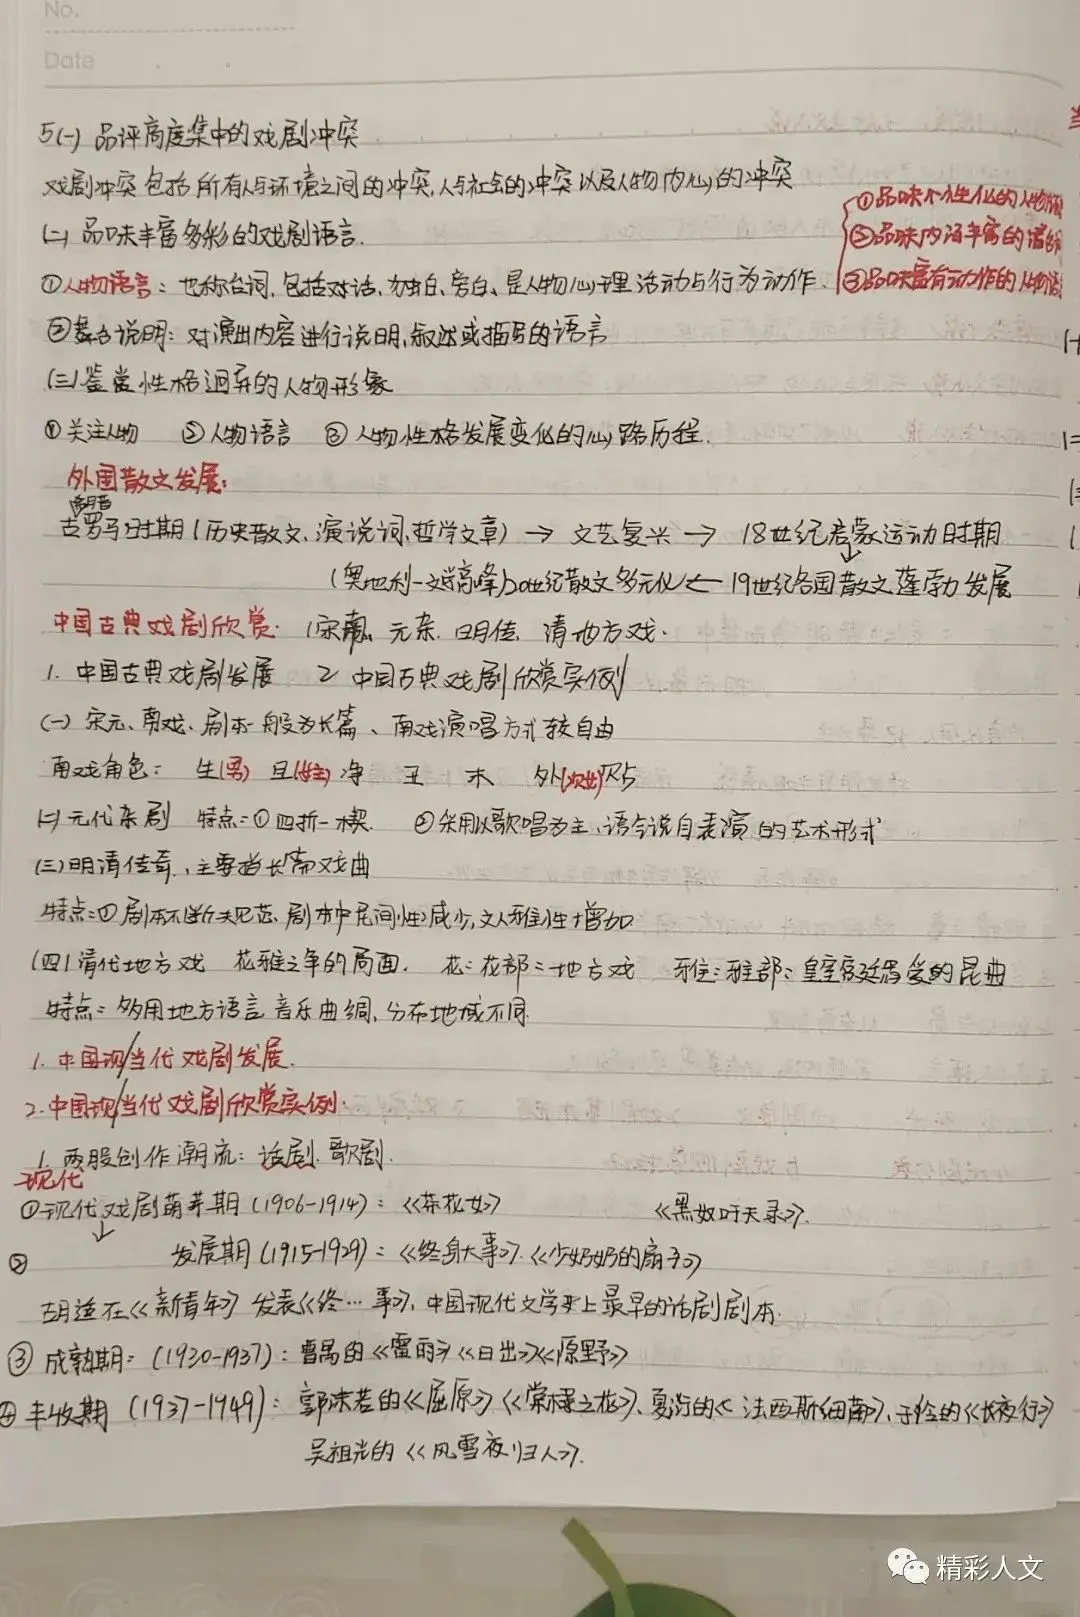 No.
Date
5(一) 品评高度集中的戏剧冲突
戏剧冲突包括所有人与环境之间的冲突,人与社会的冲突以及人物内心的冲突
(二) 品味丰富多彩的戏剧语言.
①品味个性化的人物
②品味内涵丰富的
③品味富有动作的人物
①人物语言: 也称台词,包括对话、独白、旁白、是人物心理活动与行为动作.
②舞台说明: 对演出内容进行说明,叙述或描写的语言
(三)鉴赏性格迥异的人物形象
①关注人物 ②人物语言 ③人物性格发展变化的心路历程.
外国散文发展:
古罗马时期(历史散文、演说词、哲学文章) → 文艺复兴 → 18世纪启蒙运动时期
(奥地利一文学高峰)20世纪散文多元化 ← 19世纪各国散文蓬勃发展
中国古典戏剧欣赏: 宋南、元杂、明传、清地方戏.
1. 中国古典戏剧发展 2 中国古典戏剧欣赏实例
(一) 宋元、南戏、剧本一般为长篇、南戏演唱方式较自由
南戏角色: 生(男) 旦(女主) 净 丑 末 外 贴
(二)元代杂剧 特点:①四折一楔. ②采用以歌唱为主、
(三)明清传奇、主要指长篇戏曲
特点:①剧本不断规范、剧本中民间性减少,文人雅性增加
(四)清代地方戏 花雅之争的局面. 花:花部:地方戏 雅:雅部:皇室宫廷喜爱的昆曲
特点:多用地方语言音乐曲调,分布地域不同.
1. 中国现/当代戏剧发展.
2. 中国现/当代戏剧欣赏实例.
1. 两股创作潮流: 话剧、歌剧.
现代
①现代戏剧萌芽期(1906-1914): 《茶花女》 《黑奴吁天录》.
② 发展期(1915-1929): 《终身大事》.《少奶奶的扇子》
胡适在《新青年》发表《终…事》、中国现代文学史上最早的话剧剧本.
③ 成熟期: (1930-1937): 曹禺的《雷雨》《日出》《原野》
④丰收期 (1937-1949): 郭沫若的《屈原》《棠棣之花》、夏衍的《法西斯细菌》、于伶的《长夜行》
吴祖光的《风雪夜归人》.
精彩人文